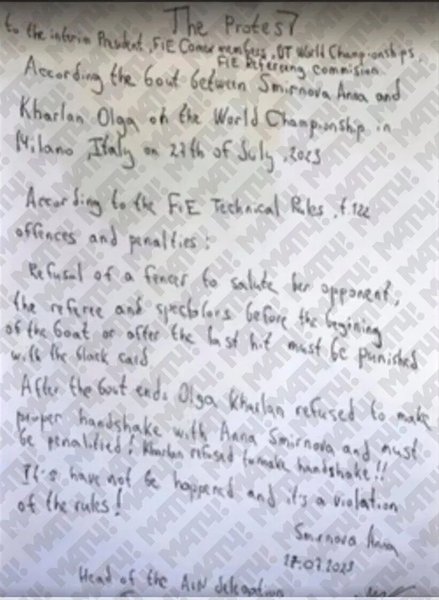 The Protest
to the interim President, FIE Comex members, DT World Championships,
FIE Refereeing commision
According the bout between Smirnova Anna and
Kharlan Olga on the World Championship in
Milano, Italy on 27th of July, 2023
According to the FIE Technical Rules, t.122
offences and penalties:
Refusal of a fencer to salute her opponent,
the referee and spectators before the begining
of the bout or after the last hit must be punished
with the black card
After the bout ends Olga Kharlan refused to make
proper handshake with Anna Smirnova and must
be penalitied! Kharlan refused to make handshake!!
It's have not be happened and it's a violation
of the rules!
Smirnova Anna
27.07.2023
Head of the AIN delegation
МАТЧ!